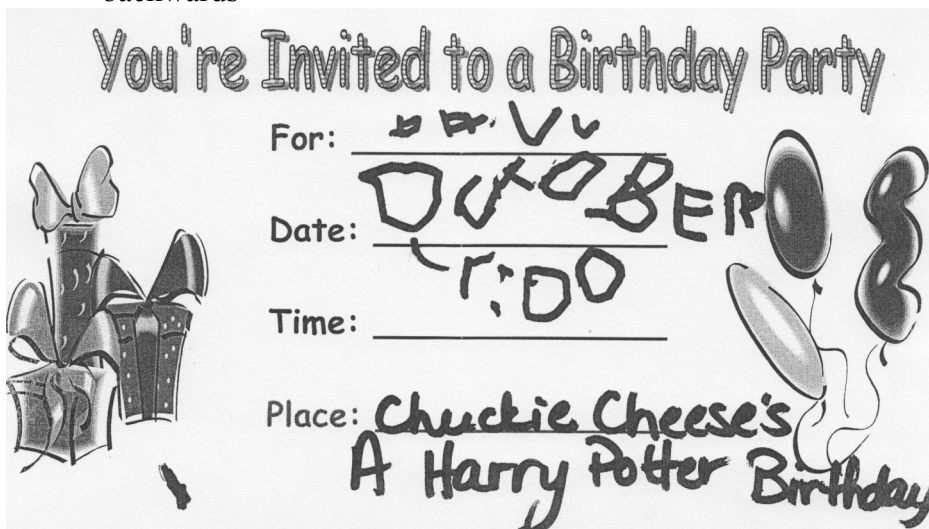 You're Invited to a Birthday Party
For:
Date: OctOBER
Time: :00
Place: Chuckie Cheese's
A Harry Potter Birthday